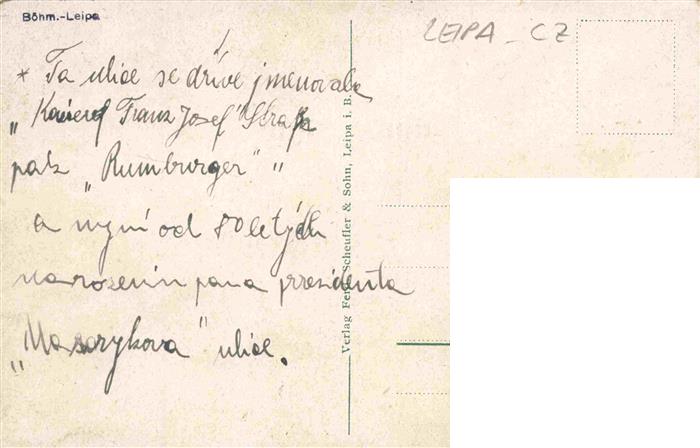 Böhm.-Leipa
LEIPA - CZ
* Ta ulice se dříve jmenovala
„Kaiser Franz Josef Straße
pak „Rumburger" "
a nyní od 80letých
narozenin pana presidenta
„Masarykova" ulice.
Verlag Ferd. Scheufler & Sohn, Leipa i. B.